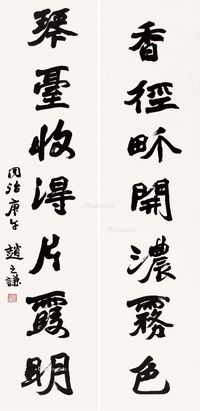 香徑畍開濃霧色
琴臺收得片霞明
同治庚午 趙之謙